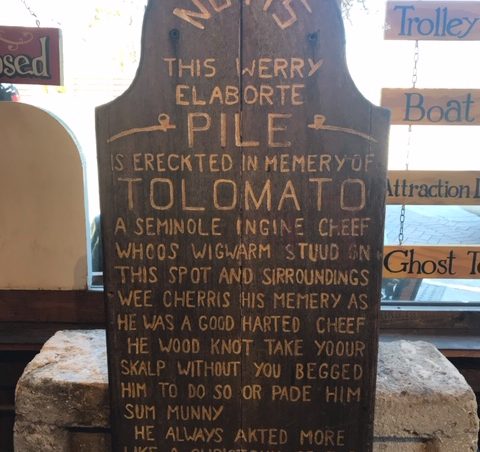 NOTIS
THIS WERRY
ELABORTE
PILE
IS ERECKTED IN MEMERY OF
TOLOMATO
A SEMINOLE INGINE CHEEF
WHOOS WIGWARM STUUD ON
THIS SPOT AND SIRROUNDINGS
WEE CHERRIS HIS MEMERY AS
HE WAS A GOOD HARTED CHEEF
HE WOOD KNOT TAKE YOOUR
SKALP WITHOUT YOU BEGGED
HIM TO DO SO OR PADE HIM
SUM MUNNY
HE ALWAYS AKTED MORE
LIKE A
osed
Trolley
Boat
Attraction
Ghost